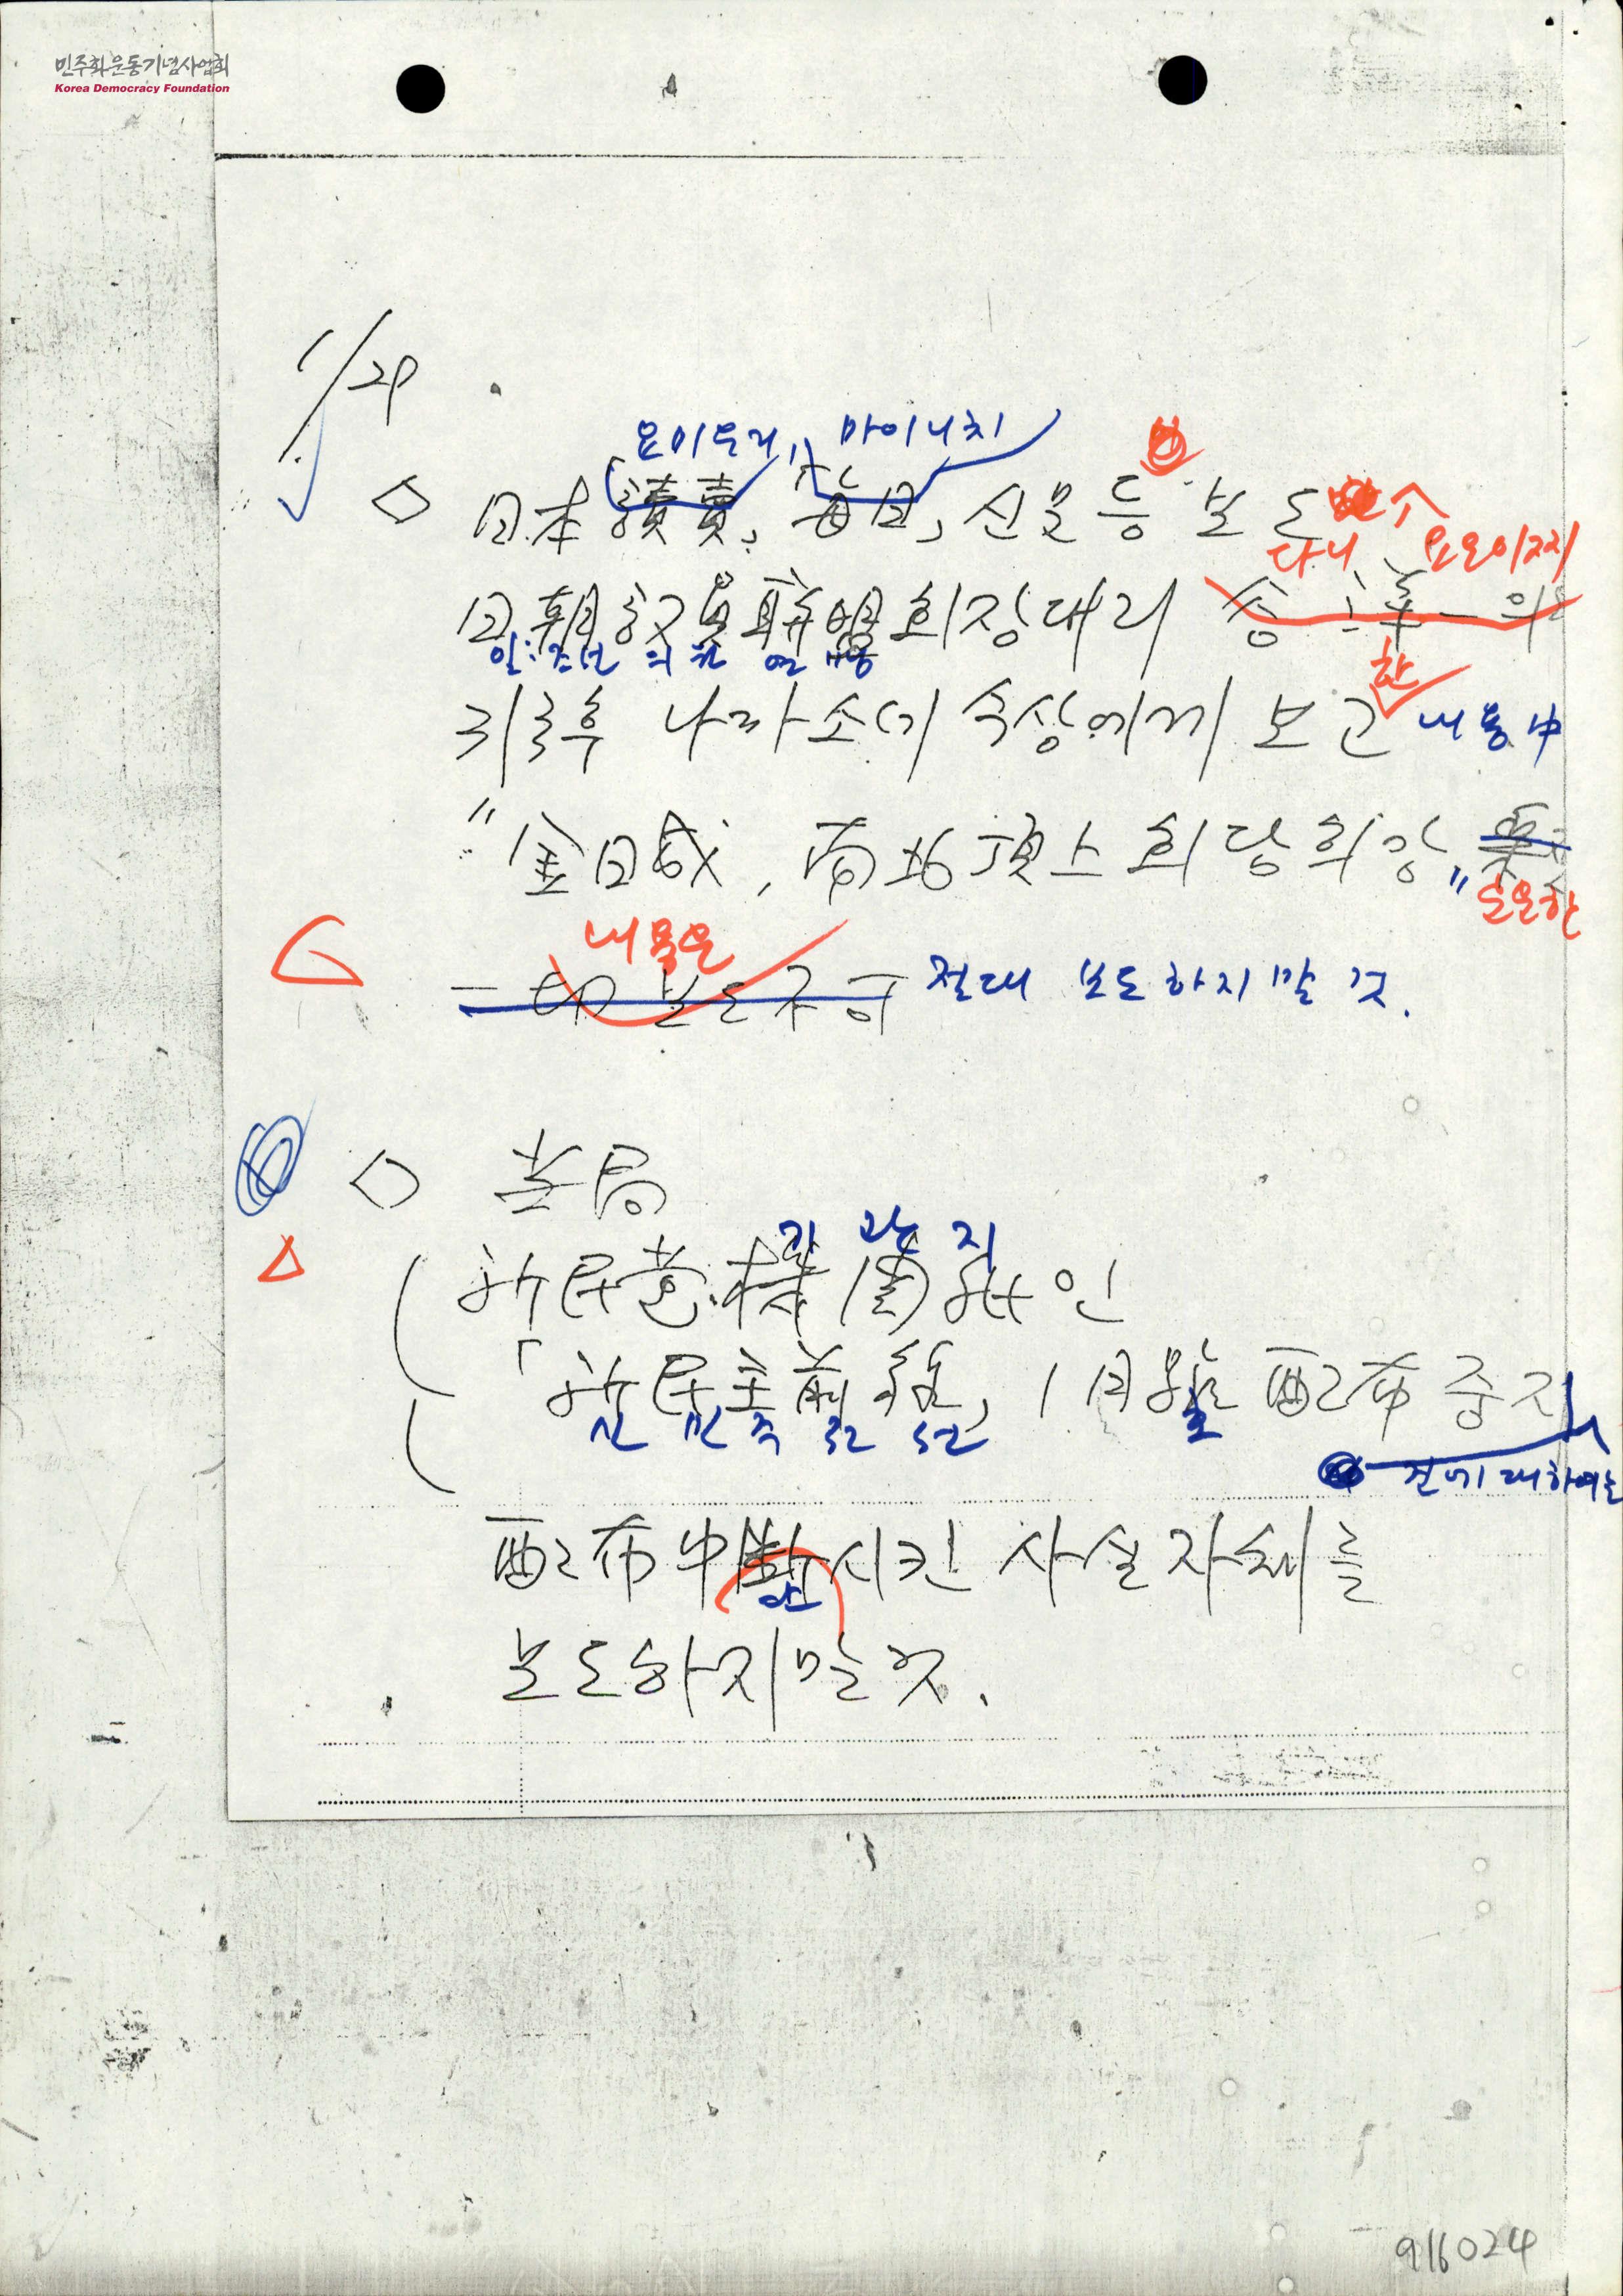 민주화운동기념사업회
Korea Democracy Foundation
요미우리, 마이니치
日本 讀賣, 每日, 신문 등 보도
다니 요오이찌
日朝議員聯盟 회장대리
일·조선 의원 연맹
귀국후 나까소네 수상에게 보고한 내용中
"金日成, 南北頂上 회담 희망"
내용은
一切 보도 不可 절대 보도하지 말 것.
◇ 당局
기관지
新民党 機関紙인
「新民主前線」 1月號 配布 중지
신민주전선 호
건에 대하여는
配布中斷시킨 사실 자체를
단
보도하지 말 것.
916024